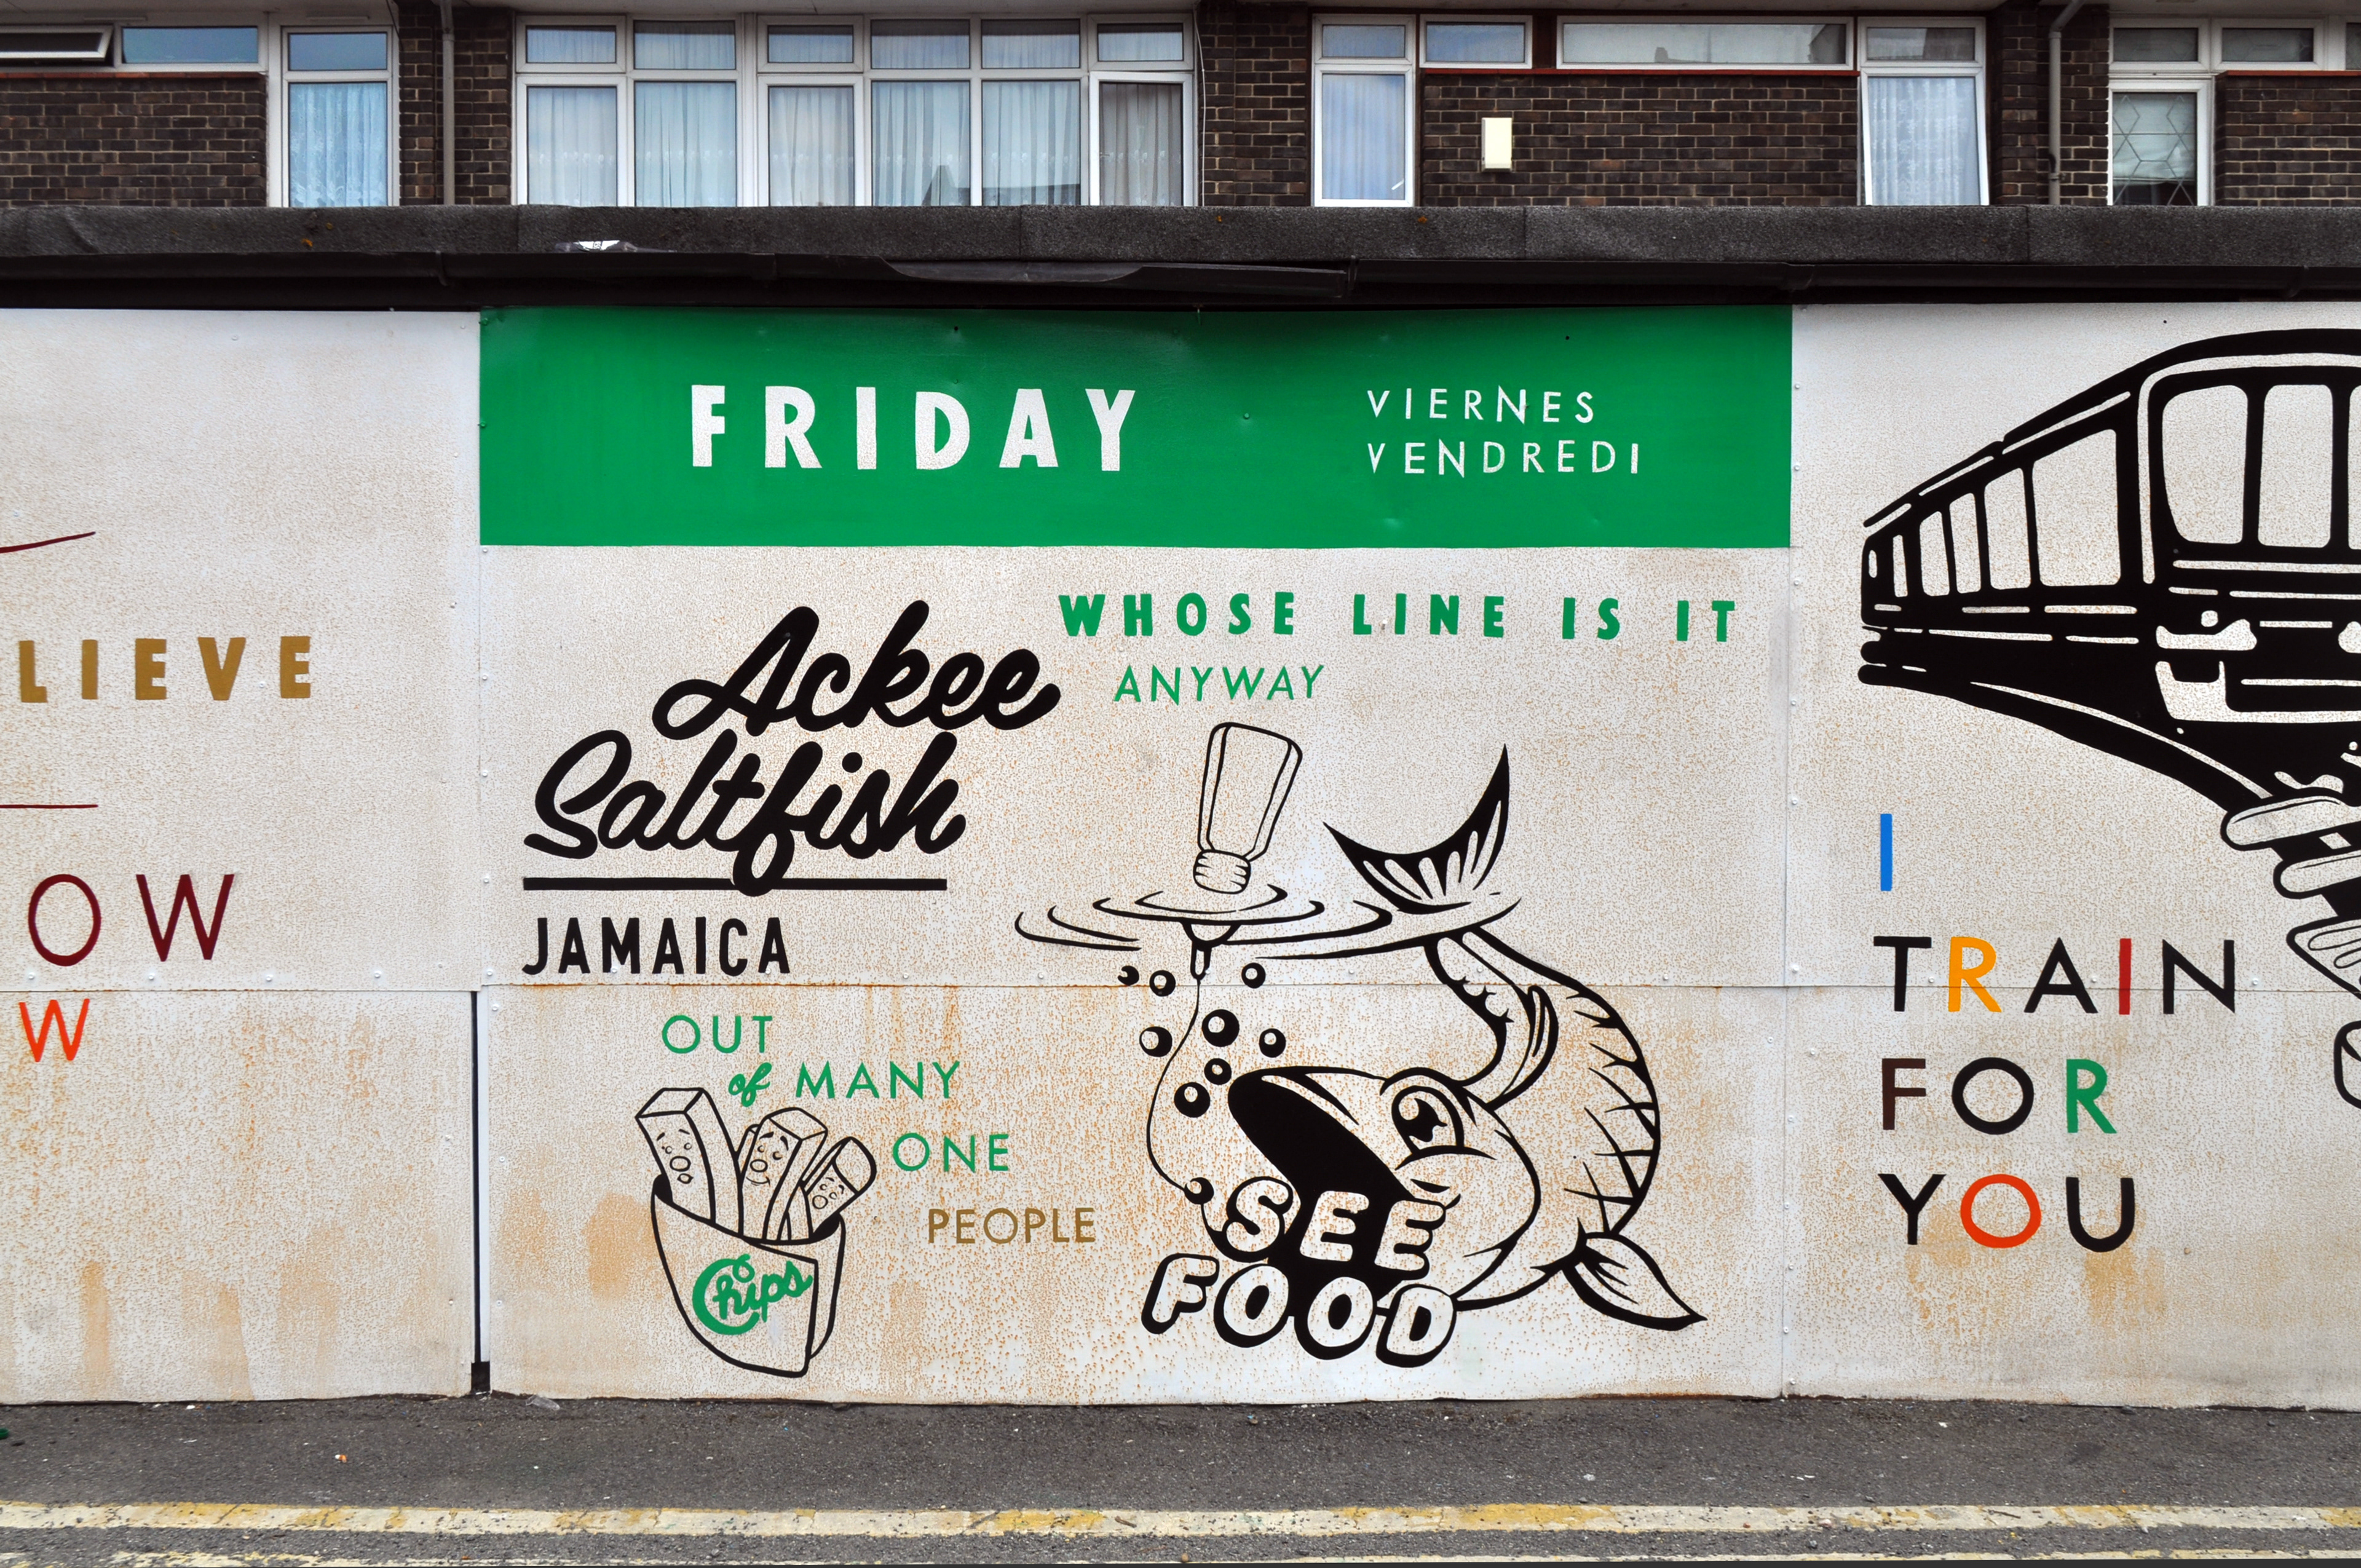 LIEVE
OW
W
FRIDAY
VIERNES
VENDREDI
WHOSE LINE IS IT
ANYWAY
Ackee
Saltfish
JAMAICA
OUT
of MANY
ONE
PEOPLE
Chips
SEE
FOOD
I
TRAIN
FOR
YOU